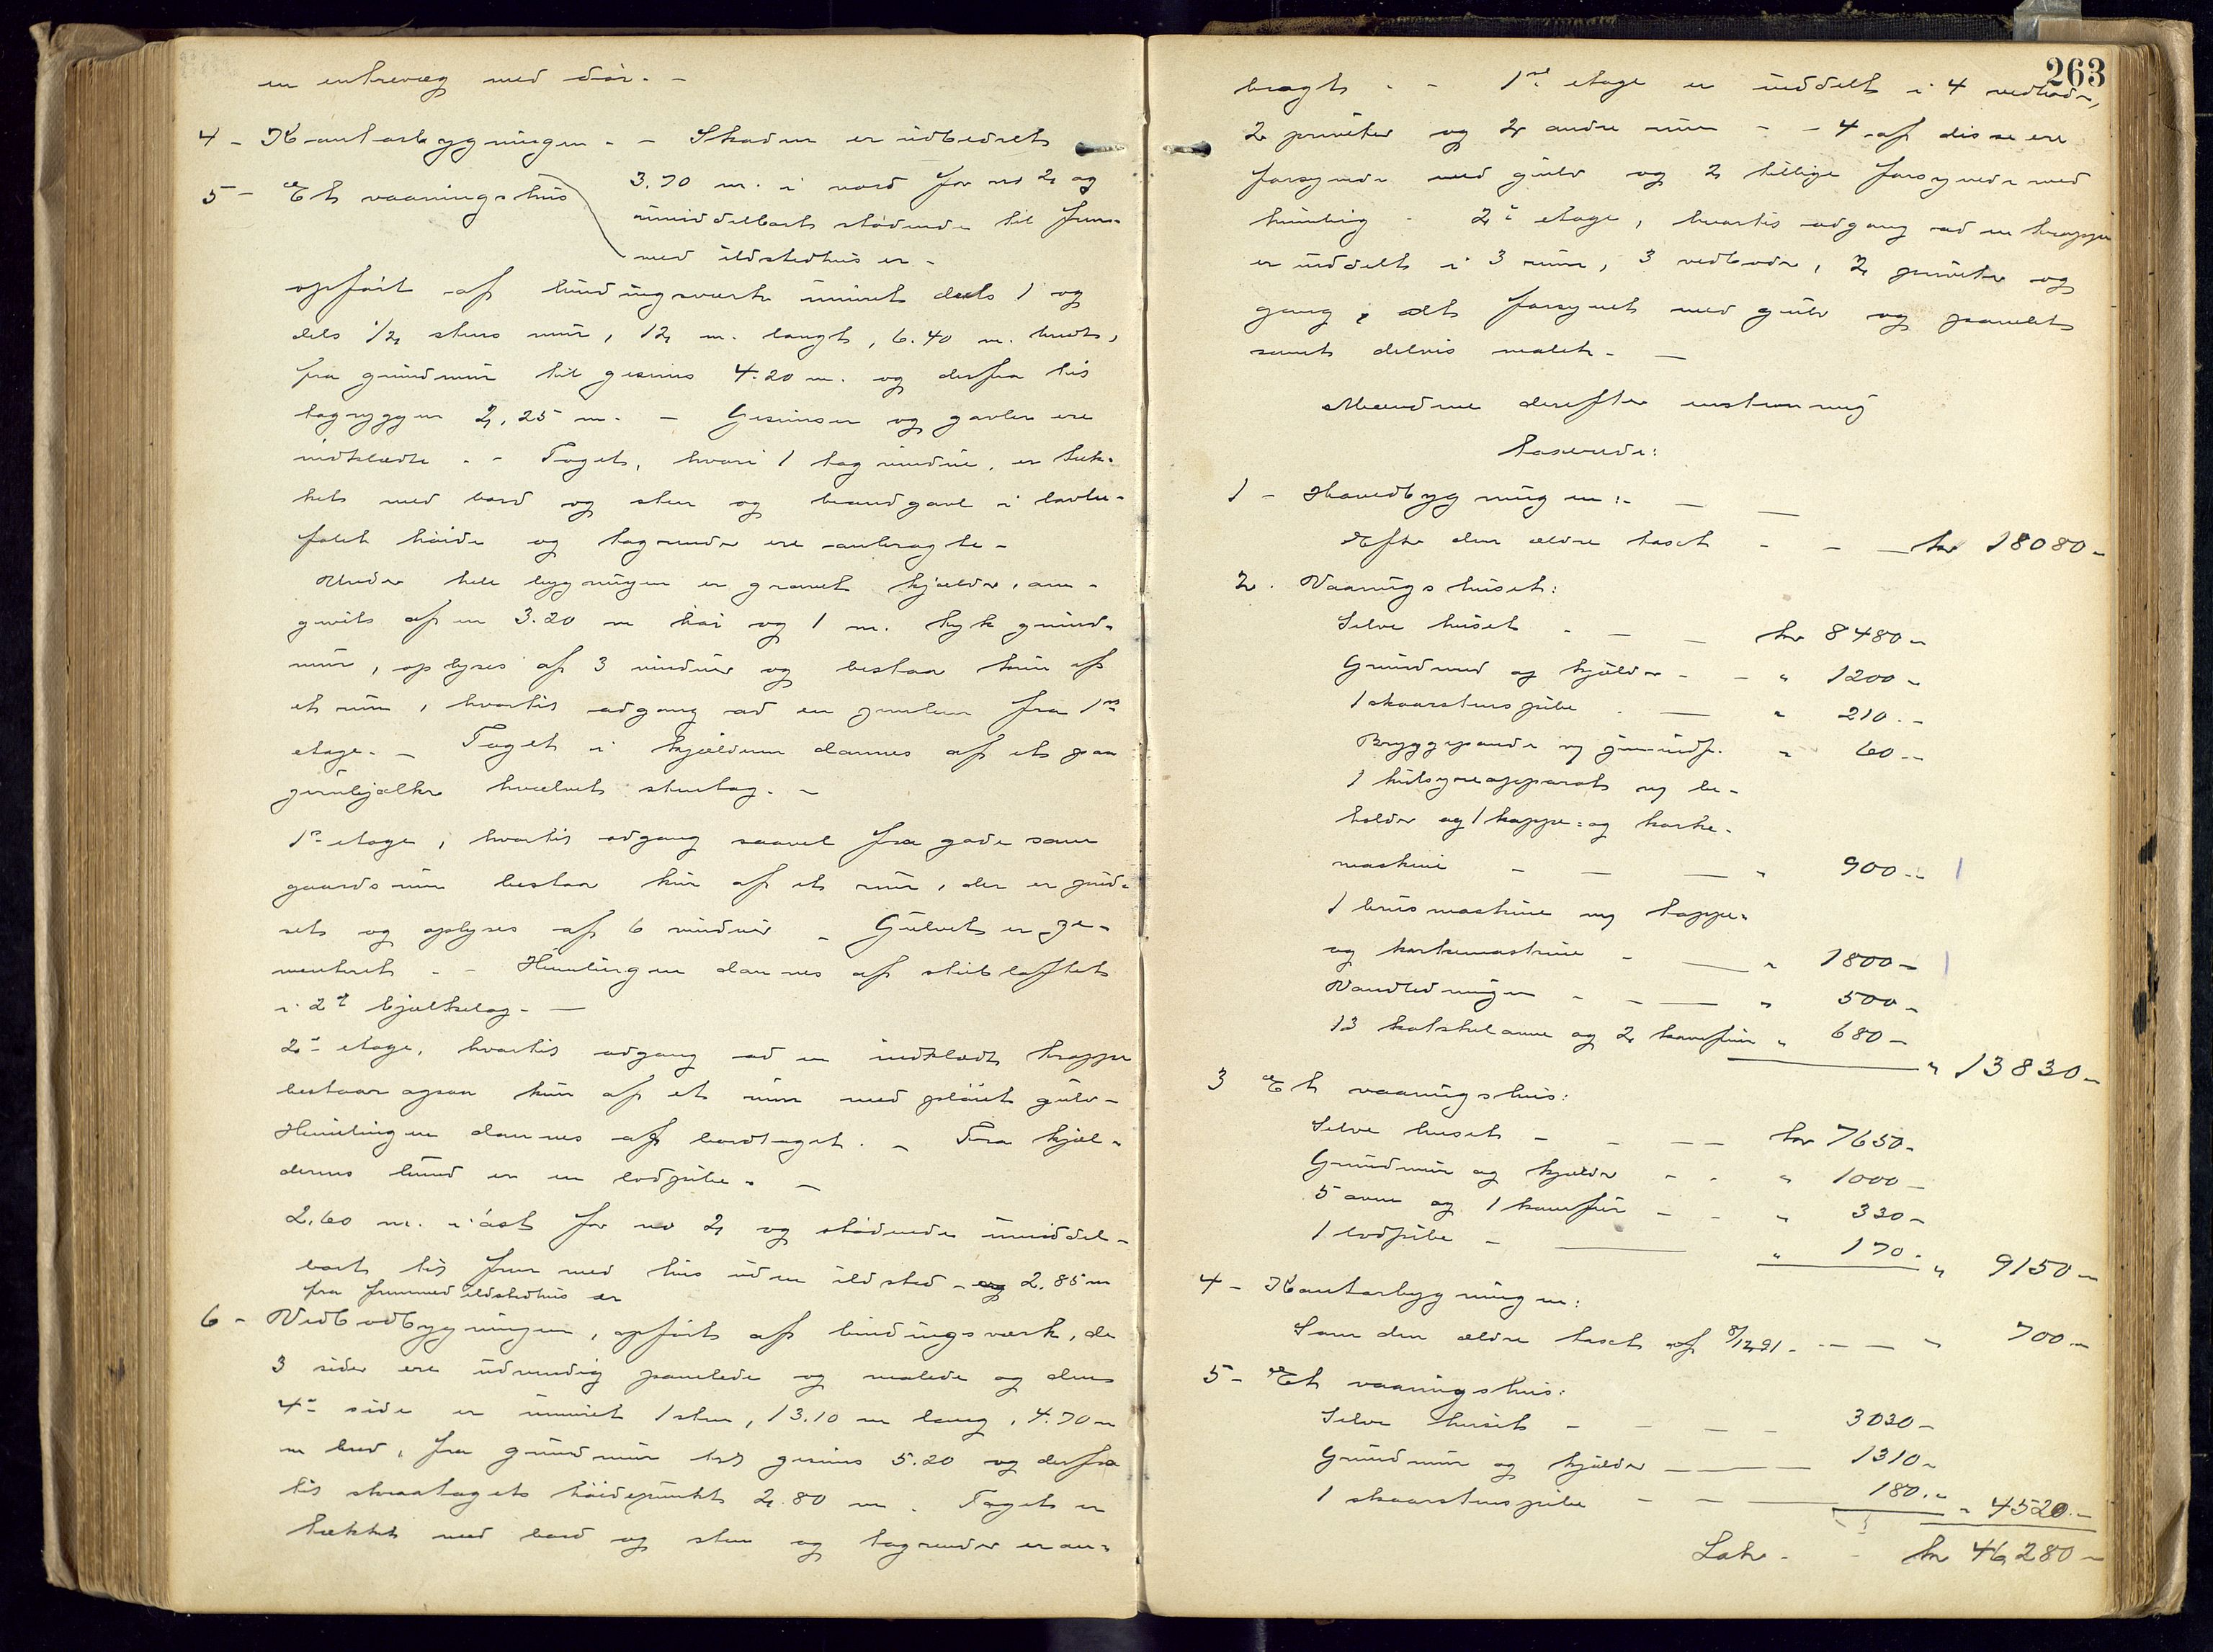 en entrevæg med dör. -
4 - Kontorbygningen. - Skaden er udbedret
5 - Et vaaningshus 3.70 m. i nord for no 2 og
umiddelbart stödende til frem-
med ildstedhus er -
opfört af bindingsværk muret dels 1 og
dels 1/2 stens mur, 12 m. langt, 6.40 m. bredt,
fra grundmur til gesims 4.20 m. og derfra til
tagryggen 2,25 m. - Gesimser og gavler ere
indklædte. - Taget, hvori 1 tagvindue, er tæk-
ket med bord og sten og brandgavl i lovbe-
falet höide og tagrender ere anbragte -
Under hele bygningen er gravet kjælder, om-
givet af en 3.20 m höi og 1 m. tyk grund-
mur, oplyses af 3 vinduer og bestaar kun af
et rum, hvortil adgang ad en fra 1ste
etage. - Taget i kjælderen dannes af et paa
jernbjælker hvælvet stentag. -
1ste etage, hvortil adgang saavel fra gade som
gaardsrum bestaar kun af et rum, der er pud-
set og oplyses af 6 vinduer - Gulvet er ze-
menteret. - Himlingen dannes af stubloftet
i 2det bjælkelag. -
2den etage, hvortil adgang ad en indklædt trappe
bestaar ogsaa kun af et rum med plöiet gulv -
Himlingen dannes af bordtaget. - Fra kjæl-
derens bund er en lodpibe. -
2.60 m. i öst for no 2 og stödende umiddel-
bart til frem med hus uden ildsted - og 2.85 m
fra fremmed ildstedhus er
6 - Vedbodbygningen, opfört af bindingsværk, de
3 sider ere udvendig panelede og malede og den
4de side er muret 1 sten, 13.10 m lang, 4.70 m
m bred, fra grundmur til gesims 5.20 og derfra
til skraatagets höidepunkt 2.80 m. Taget er
tækket med bord og sten og tagrender er an-
263
bragt. - 1ste etage er inddelt i 4 vedboder,
2 priveter og 2 andre rum - - 4 af disse ere
forsynede med gulv og 2 tillige forsynede med
himling. 2den etage, hvortil adgang ad en trappe
er inddelt i 3 rum, 3 vedboder, 2 priveter og
gang, alt forsynet med gulv og panelet
samt delvis malet. -
Mændene derefter enstemmig
taxerede:
1 - Hovedbygningen: -
Efter den ældre taxt - - kr 18080 -
2. Vaaningshuset:
Selve huset - - kr 8480 -
Grundmur og kjælder - - " 1200 -
1 skorstenspibe - " 210. -
Bryggepande og " 60 -
1 kulsyreapparat og be-
holder og 1 tappe- og korke-
maskine - - - " 900 -
1 brusmaskine og tappe-
og korkemaskine - - " 1800 -
Vandledningen - - " 500 -
13 kakkelovne og 2 komfur " 680 -
" 13830 -
3 Et vaaningshus:
Selve huset - - - kr 7650 -
Grundmur og kjælder - - " 1000 -
5 ovne og 1 komfur - - " 330 -
1 lodpibe - " 170 - " 9150 -
4 - Kontorbygningen:
Som den ældre taxt af 8/12 91 - - - " 700 -
5 - Et vaaningshus:
Selve huset - - - 3030 -
Grundmur og kjælder - 1310 -
1 skorstenspibe - - 180. - " 4520. -
Lat. - kr 46,280 -